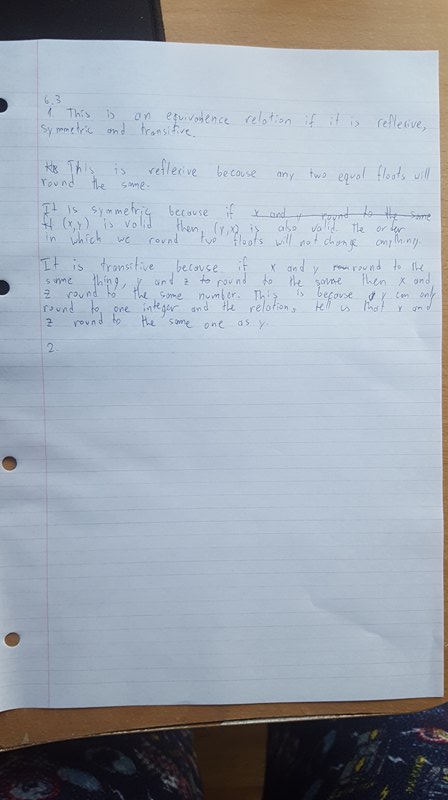 6.3
1. This is an equivalence relation if it is reflexive,
symmetric and transitive.
This is reflexive because any two equal floats will
round the same.
It is symmetric because if x and y round to the same
(x,y) is valid then (y,x) is also valid. The order
in which we round two floats will not change anything.
It is transitive because if x and y round to the
same thing, y and z round to the same then x and
z round to the same number. This is because y can only
round to one integer and the relation, tell us that x and
z round to the same one as y.
2.